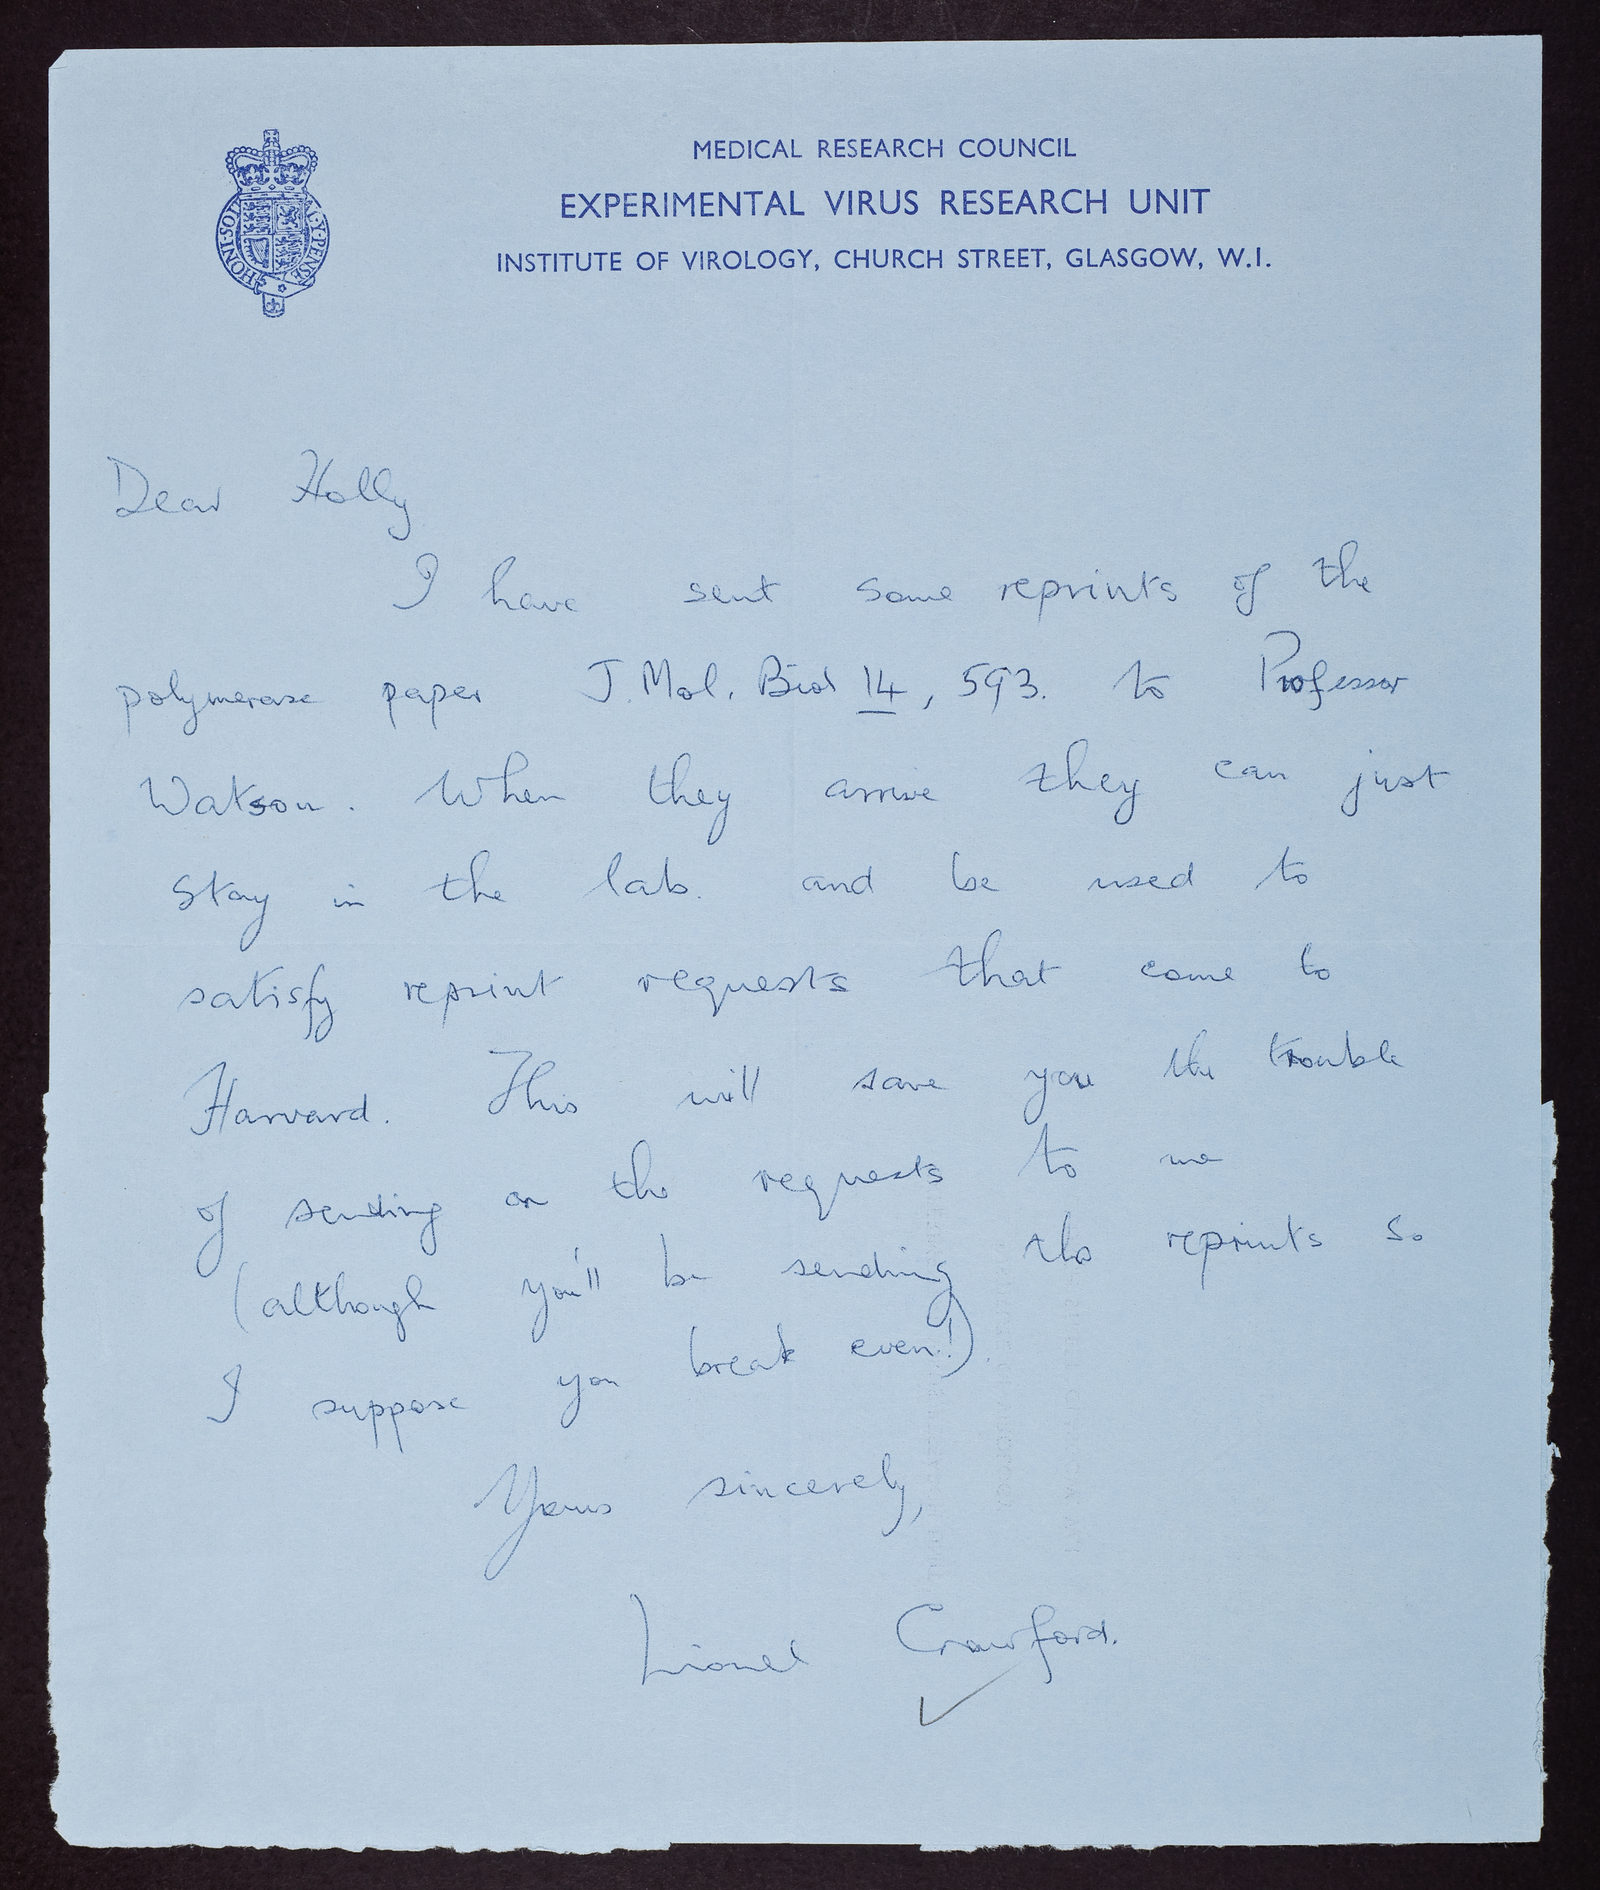 MEDICAL RESEARCH COUNCIL
EXPERIMENTAL VIRUS RESEARCH UNIT
INSTITUTE OF VIROLOGY, CHURCH STREET, GLASGOW, W.I.
HONI·SOIT AL·Y·PENSE
Dear Holly
I have sent some reprints of the
polymerase paper J. Mol. Biol 14, 593. to Professor
Watson. When they arrive they can just
stay in the lab. and be used to
satisfy reprint requests that come to
Harvard. This will save you the trouble
of sending on the requests to me
(although you'll be sending the reprints so
I suppose you break even!).
Yours sincerely,
Lionel Crawford.